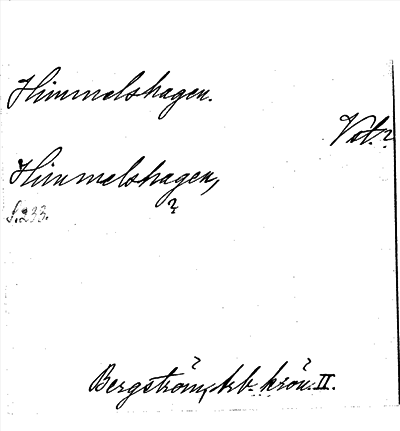 Himmelshagen.
Vot.?
Himmelshagen,
?
S. 233.
Bergström, Arb. krön. II.